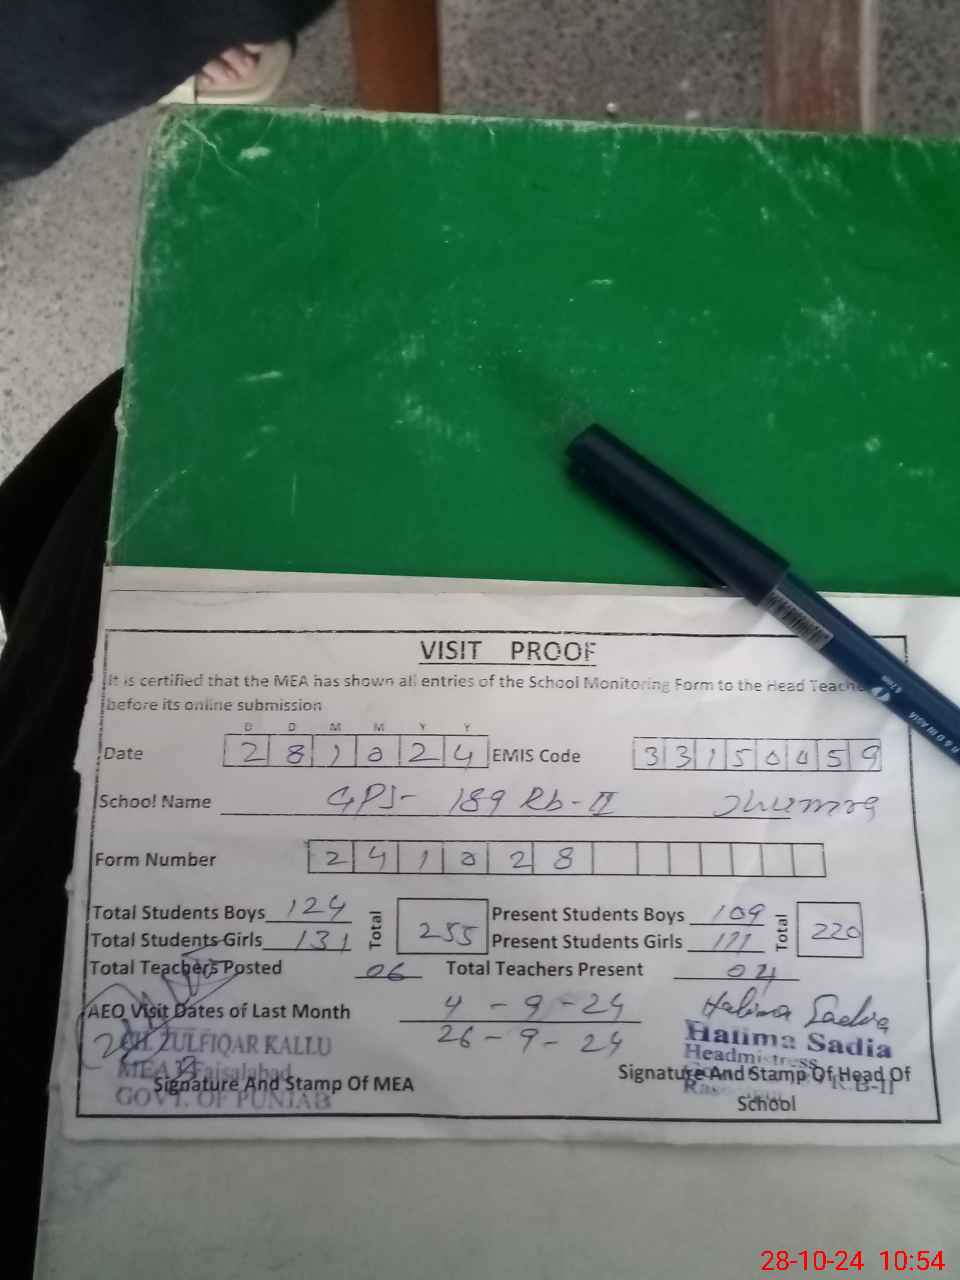 VISIT PROOF
It is certified that the MEA has shown all entries of the School Monitoring Form to the Head Teache
before its online submission
D D M M Y Y
Date 2 8 1 0 2 4 EMIS Code 3 3 1 5 0 4 5 9
School Name GPS- 189 Rb-II Jhumra
Form Number 2 4 1 0 2 8
Total Students Boys 124 Total 255 Present Students Boys 109 Total 220
Total Students Girls 131 Present Students Girls 111
Total Teachers Posted 06 Total Teachers Present 04
AEO Visit Dates of Last Month 4 - 9 - 24 Halima Sadia
26 - 9 - 24
CH. ZULFIQAR KALLU Halima Sadia
MEA Faisalabad Headmistress
Signature And Stamp Of MEA Signature And Stamp Of Head Of
School
GOVT. OF PUNJAB R.B-II
28-10-24 10:54